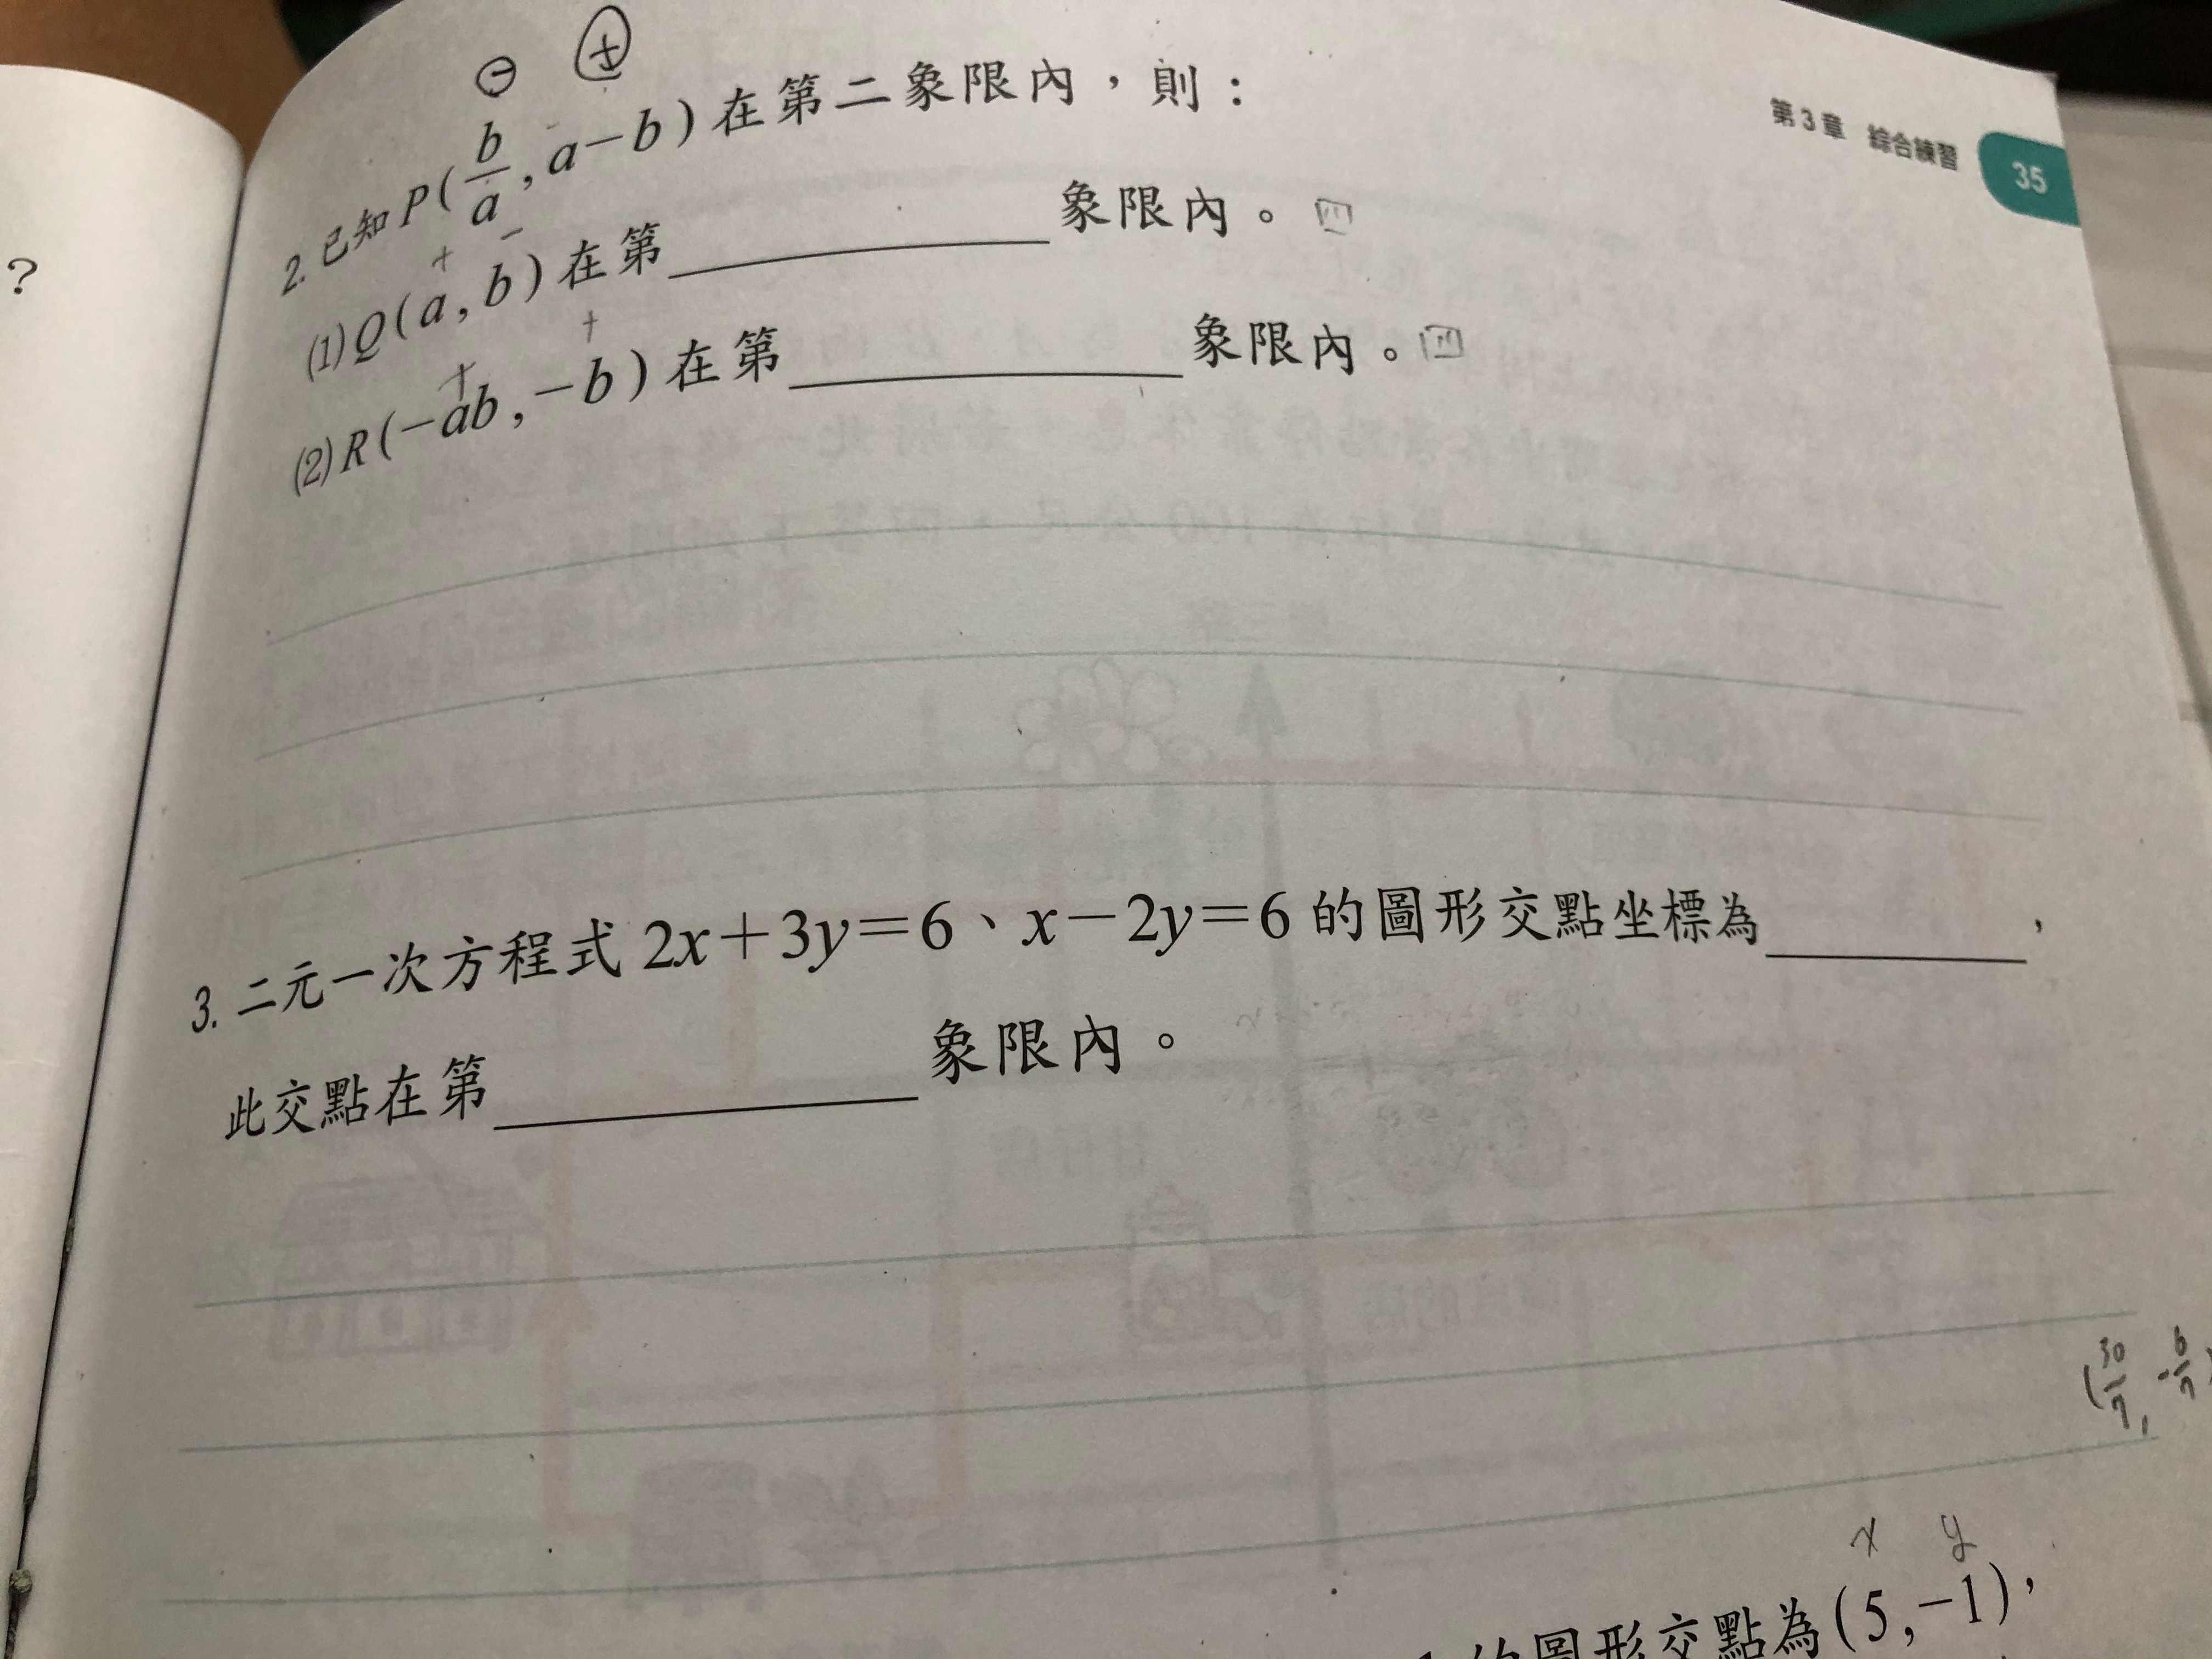 第3章 綜合練習 35
?
⊖ ⊕
2. 已知 P(b/a, a−b) 在第二象限內，則：
+ −
(1) Q(a, b) 在第____象限內。四
+ +
(2) R(−ab, −b) 在第____象限內。四
3. 二元一次方程式 2x+3y=6、x−2y=6 的圖形交點坐標為____，
此交點在第____象限內。
(30/7, -6/7)
x y
的圖形交點為(5,−1)，